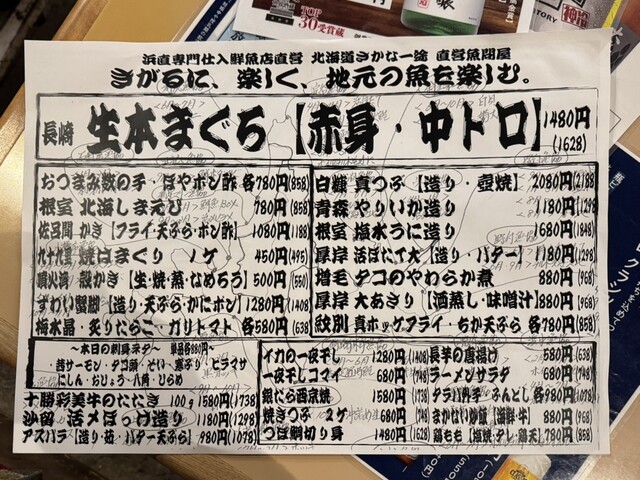 浜直専門仕入鮮魚店直営 北海道さかな一途 直営魚問屋
きがるに、楽しく、地元の魚を楽しむ。
長崎 生本まぐろ【赤身・中トロ】1480円(1628)
おつまみ数の子・ほやポン酢 各780円(858)
根室 北海しまえび 780円(858)
佐呂間 かき【フライ・天ぷら・ポン酢】1080円(1188)
九十九里 焼はまぐり 1ケ 450円(495)
噴火湾 殻かき【生・焼・蒸・なめろう】500円(550)
ずわい蟹脚【造り・天ぷら・かにポン】1280円(1408)
梅水晶・炙りたらこ・ガリトマト 各580円(638)
白糠 真つぶ【造り・壺焼】2080円(2188
青森 やりいか造り 1180円(1298)
根室 塩水うに造り 1680円(1848)
厚岸 活ほたて大【造り・バター】1180円(1298)
増毛 タコのやわらか煮 880円(968)
厚岸 大あさり【酒蒸し・味噌汁】880円(968)
紋別 真ホッケフライ・ちか天ぷら 各780円(858)
～本日の刺身ネタ～ 単品各880円～
茜サーモン・タコ頭・そい・寒ぶり・ヒラマサ
にしん・おひょう・八角・ひらめ
十勝彩美牛のたたき 100g 1580円(1738)
沙留 活〆ほっけ造り 1180円(1298)
アスパラ【造り・茹・バター・天ぷら】980円(1078)
イカの一夜干し 1280円(1408)
一夜干しコマイ 680円(748)
銀だら西京焼 1580円(1738)
焼きつぶ 2ケ 680円(748)
つぼ鯛切り身 1480円(1628)
長芋の唐揚げ 580円(638)
ラーメンサラダ 680円(748)
タラバ内子・ふんどし 各980円(1078)
まかない炒飯【海鮮・牛】880円(968)
鶏もも【塩焼・タレ・鶏天】780円(858)
TOP
30受賞蔵
STORY